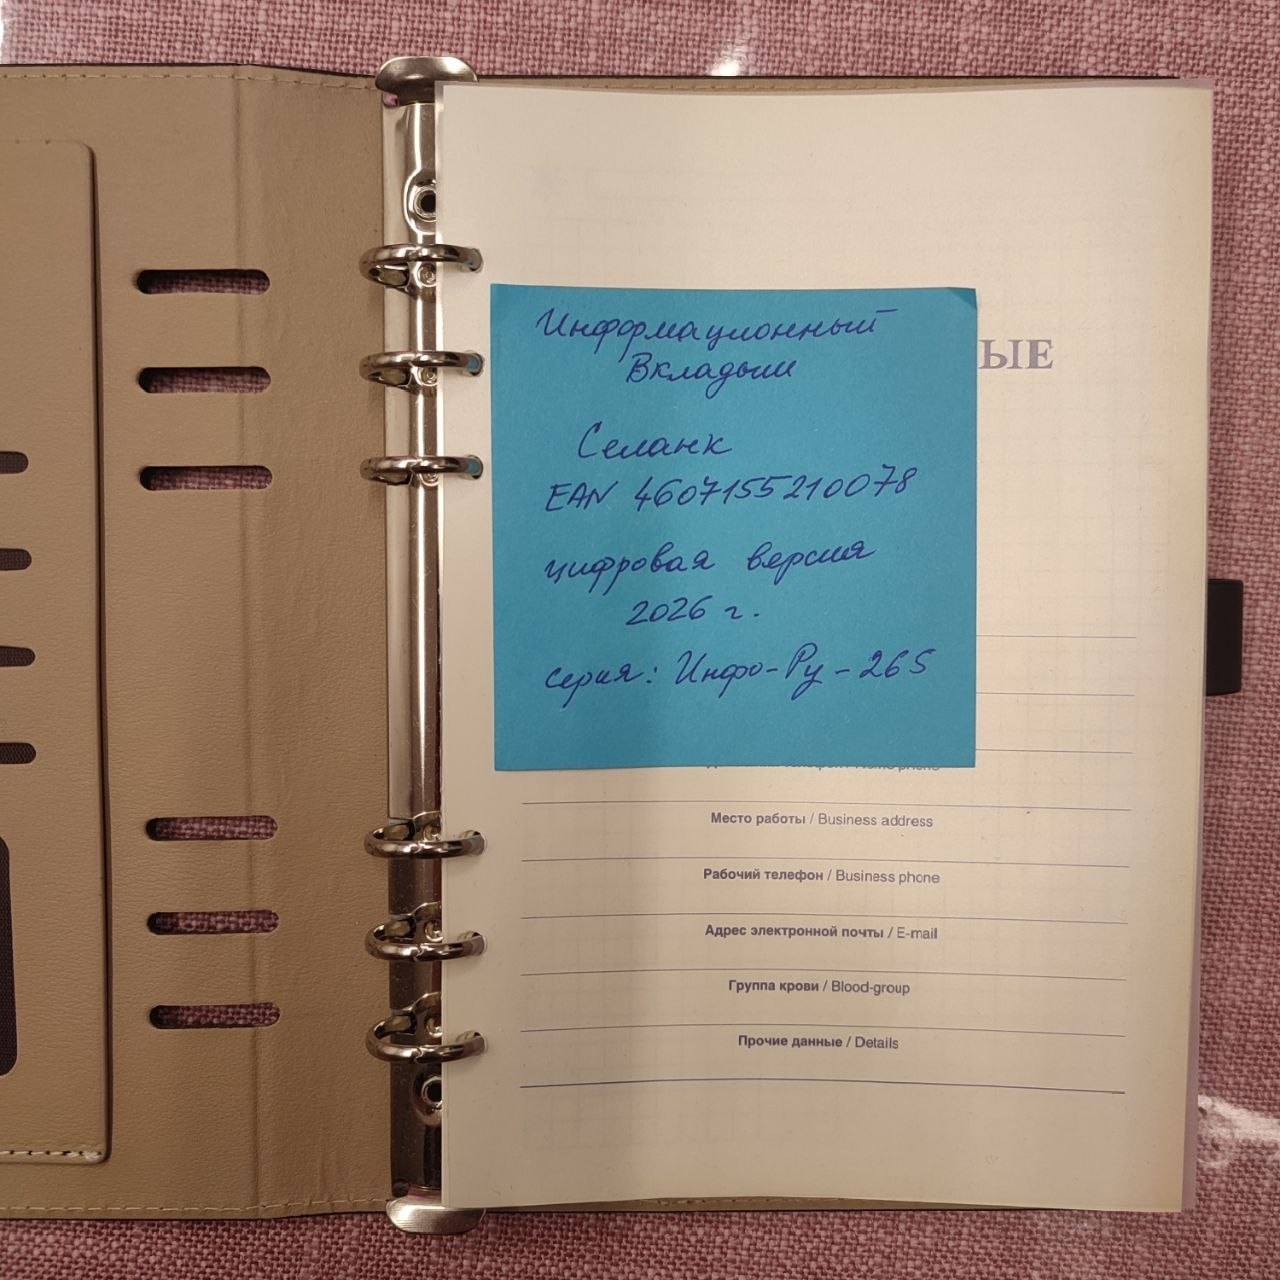 Информационный
Вкладыш
Селанк
EAN 4607155210078
цифровая версия
2026 г.
серия: Инфо-Ру-26S
ЫЕ
Место работы / Business address
Рабочий телефон / Business phone
Адрес электронной почты / E-mail
Группа крови / Blood-group
Прочие данные / Details